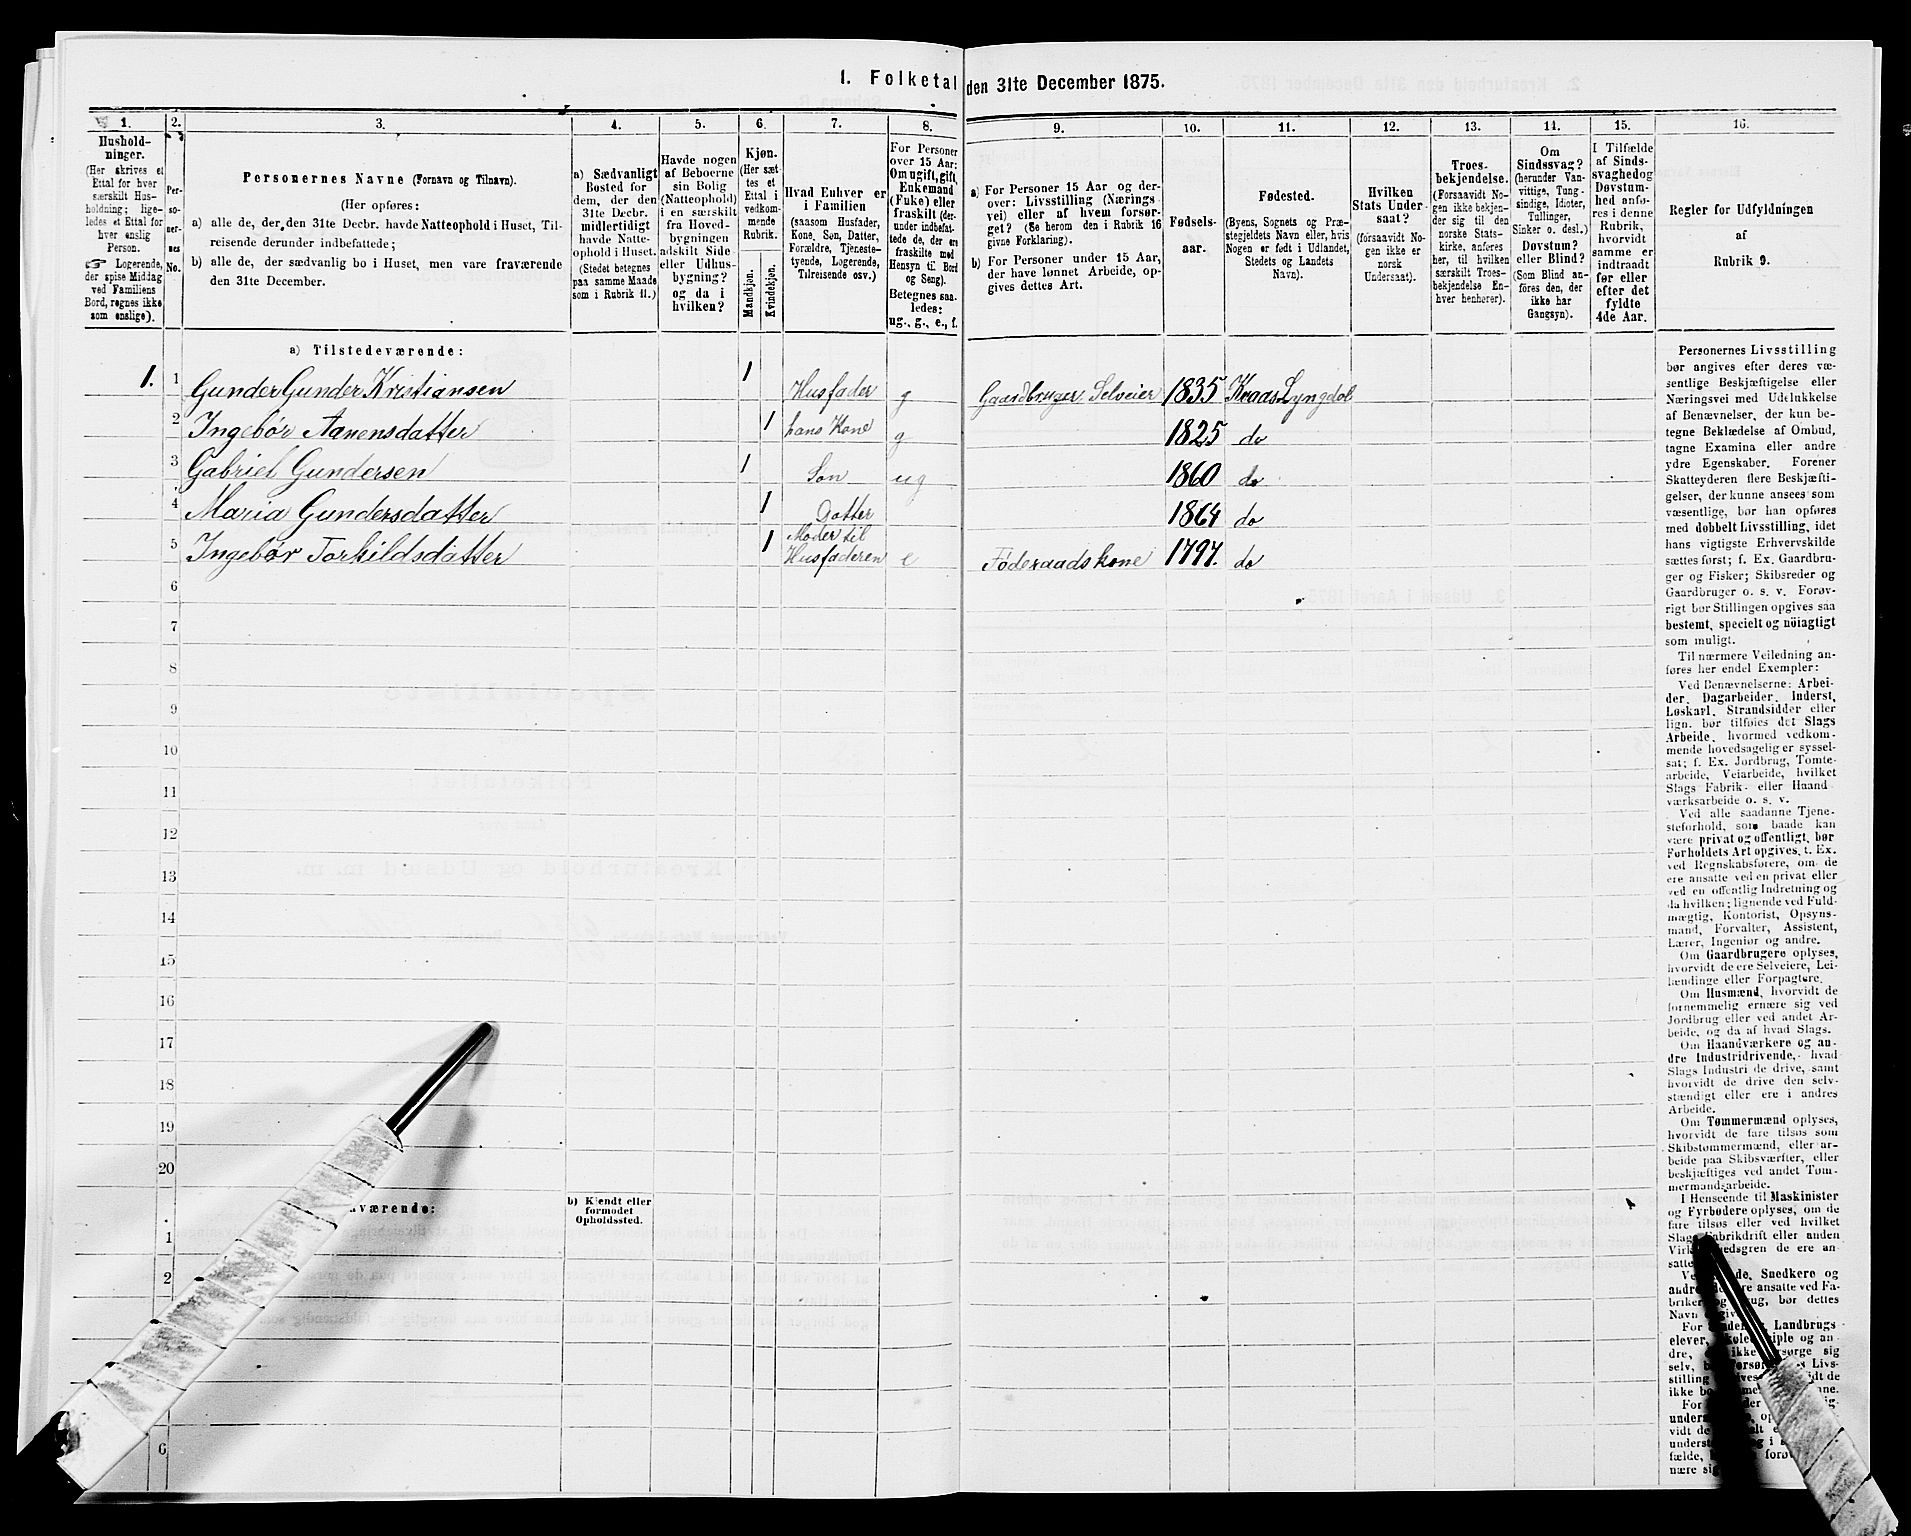 1. Folketal den 31te December 1875.
1.
Hushold-
ninger.
(Her skrives et
Ettal for hver
særskilt Hus-
holdning; lige-
ledes et Ettal for
hver enslig
Person.
☞ Logerende,
der spise Middag
ved Familiens
Bord, regnes ikke
som enslige).
2.
Per-
so-
ner-
nes
No.
3.
Personernes Navne (Fornavn og Tilnavn).
(Her opføres:
a) alle de, der den 31te Decbr. havde Natteophold i Huset, Til-
reisende derunder indbefattede;
b) alle de, der sædvanlig bo i Huset, men vare fraværende
den 31te December.
4.
a) Sædvanligt
Bosted for
dem, der den
31te Decbr.
midlertidigt
havde Natte-
ophold i Huset.
(Stedet betegnes
paa samme Maade
som i Rubrik 11.)
5.
Havde nogen
af Beboerne
sin Bolig
(Natteophold)
i en særskilt
fra Hoved-
bygningen
adskilt Side-
eller Udhus-
bygning?
og da i
hvilken?
6.
Kjøn.
(Her sæt-
tes et
Ettal i
vedkom-
mende
Rubrik.
Mandkjøn.
Kvindekjøn.
7.
Hvad Enhver er
i Familien
(saasom Husfader,
Kone, Søn, Datter,
Forældre, Tjeneste-
tyende, Logerende,
Tilreisende osv.)
8.
For Personer
over 15 Aar:
Om ugift, gift,
Enkemand
(Enke) eller
fraskilt (der-
under indbefat-
tede de, der ere
fraskilte med
Hensyn til Bord
og Seng).
Betegnes saa-
ledes:
ug., g., e., f.
9.
a) For Personer 15 Aar og der-
over: Livsstilling (Nærings-
vei) eller af hvem forsør-
get? (Se herom den i Rubrik 16
givne Forklaring).
b) For Personer under 15 Aar,
der have lønnet Arbeide, op-
gives dettes Art.
10.
Fødsels-
aar.
11.
Fødested.
(Byens, Sognets og Præ-
stegjeldets Navn eller, hvis
Nogen er født i Udlandet,
Stedets og Landets
Navn).
12.
Hvilken
Stats Under-
saat?
(forsaavidt No-
gen ikke er
norsk
Undersaat).
13.
Troes-
bekjendelse.
(Forsaavidt No-
gen ikke bekjen-
der sig til den
norske Stats-
kirke, anføres
her, til hvilken
særskilt Troes-
bekjendelse En-
hver henhører).
14.
Om
Sindssvag?
(herunder Van-
vittige, Tung-
sindige, Idioter,
Tullinger,
Sinker o. desl.)
Døvstum?
eller Blind?
(Som Blind an-
føres den, der
ikke har
Gangsyn).
15.
I Tilfælde
af Sinds-
svaghed og
Døvstum-
hed anfø-
res i denne
Rubrik,
hvorvidt
samme er
indtraadt
før eller
efter det
fyldte
4de Aar.
16.
Regler for Udfyldningen
af
Rubrik 9.
a) Tilstedeværende:
1. 1 Gunder Gunder Kristiansen 1 Husfader g Gaardbruger Selveier 1835 Kvaas Lyngdal
2 Ingebør Aanensdatter 1 hans Kone g 1825 do
3 Gabriel Gundersen 1 Søn ug 1860 do
4 Maria Gundersdatter 1 Datter 1864 do
5 Ingebør Torkildsdatter 1 Moder til Husfaderen e Føderaadskone 1797. do
6
7
8
9
10
11
12
13
14
15
16
17
18
19
20
værende:
b) Kjendt eller
formodet
Opholdssted.
1
2
6
Personernes Livsstilling
bør angives efter deres væ-
sentlige Beskjæftigelse eller
Næringsvei med Udelukkelse
af Benævnelser, der kun be-
tegne Beklædelse af Ombud,
tagne Examina eller andre
ydre Egenskaber. Forener
Skatteyderen flere Beskjæfti-
gelser, der kunne ansees som
væsentlige, bør han opføres
med dobbelt Livsstilling, idet
hans vigtigste Erhvervskilde
sættes først; f. Ex. Gaardbru-
ger og Fisker; Skibsreder og
Gaardbruger o. s. v. Forøv-
rigt bør Stillingen opgives saa
bestemt, specielt og nöiagtigt
som muligt.
Til nærmere Veiledning an-
føres her endel Exempler:
Ved Benævnelserne: Arbei-
der, Dagarbeider, Inderst,
Løskarl, Strandsidder eller
lign. bør tilføies det Slags
Arbeide, hvormed vedkom-
mende hovedsagelig er syssel-
sat; f. Ex. Jordbrug, Tomte-
arbeide, Veiarbeide, hvilket
Slags Fabrik- eller Haand-
værksarbeide o. s. v.
Ved alle saadanne Tjene-
steforhold, som baade kan
være privat og offentligt, bør
Forholdets Art opgives, t. Ex.
ved Regnskabsførere, om de
ere ansatte ved en privat eller
ved en offentlig Indretning og
da hvilken; lignende ved Fuld-
mægtig, Kontorist, Opsyns-
mand, Forvalter, Assistent,
Lærer, Ingeniør og andre.
Om Gaardbrugere oplyses,
hvorvidt de ere Selveiere, Lei-
lændinge eller Forpagtere.
Om Husmænd, hvorvidt de
fornemmelig ernære sig ved
Jordbrug eller ved andet Ar-
beide, og da af hvad Slags.
Om Haandværkere og an-
dre Industridrivende, hvad
Slags Industri de drive, samt
hvorvidt de drive den selv-
stændigt eller ere i andres
Arbeide.
Om Tømmermænd oplyses,
hvorvidt de fare tilsøs som
Skibstømmermænd, eller ar-
beide paa Skibsværfter, eller
beskjæftiges ved andet Tøm-
mermandsarbeide.
I Henseende til Maskinister
og Fyrbødere oplyses, om de
fare tilsøs eller ved hvilket
Slags Fabrikdrift eller anden